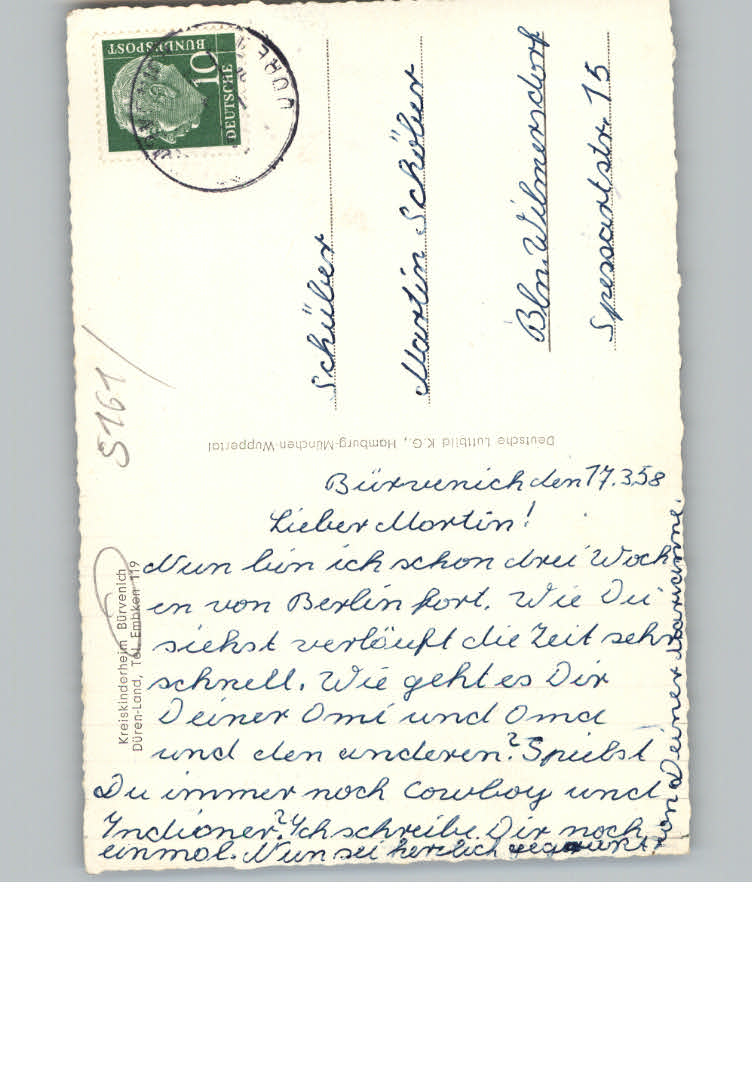 DEUTSCHE
BUNDESPOST
10
Schüler
Martin Schüler
Bln. Wilmersdorf
Spessartstr. 15
S161
Deutsche Luftbild K.G., Hamburg-München-Wuppertal
Kreiskinderheim Bürvenich
Düren-Land, Tel. Embken 119
Bürvenich den 17.3.58
Lieber Martin!
Nun bin ich schon drei Woch
en von Berlin fort. Wie Du
siehst verläuft die Zeit sehr
schnell. Wie geht es Dir
Deiner Omi und Oma
und den anderen? Spielst
Du immer noch Cowboy und
Indianer? Ich schreibe Dir noch
einmal. Nun sei herzlich gegrüßt
von Deiner Marianne.